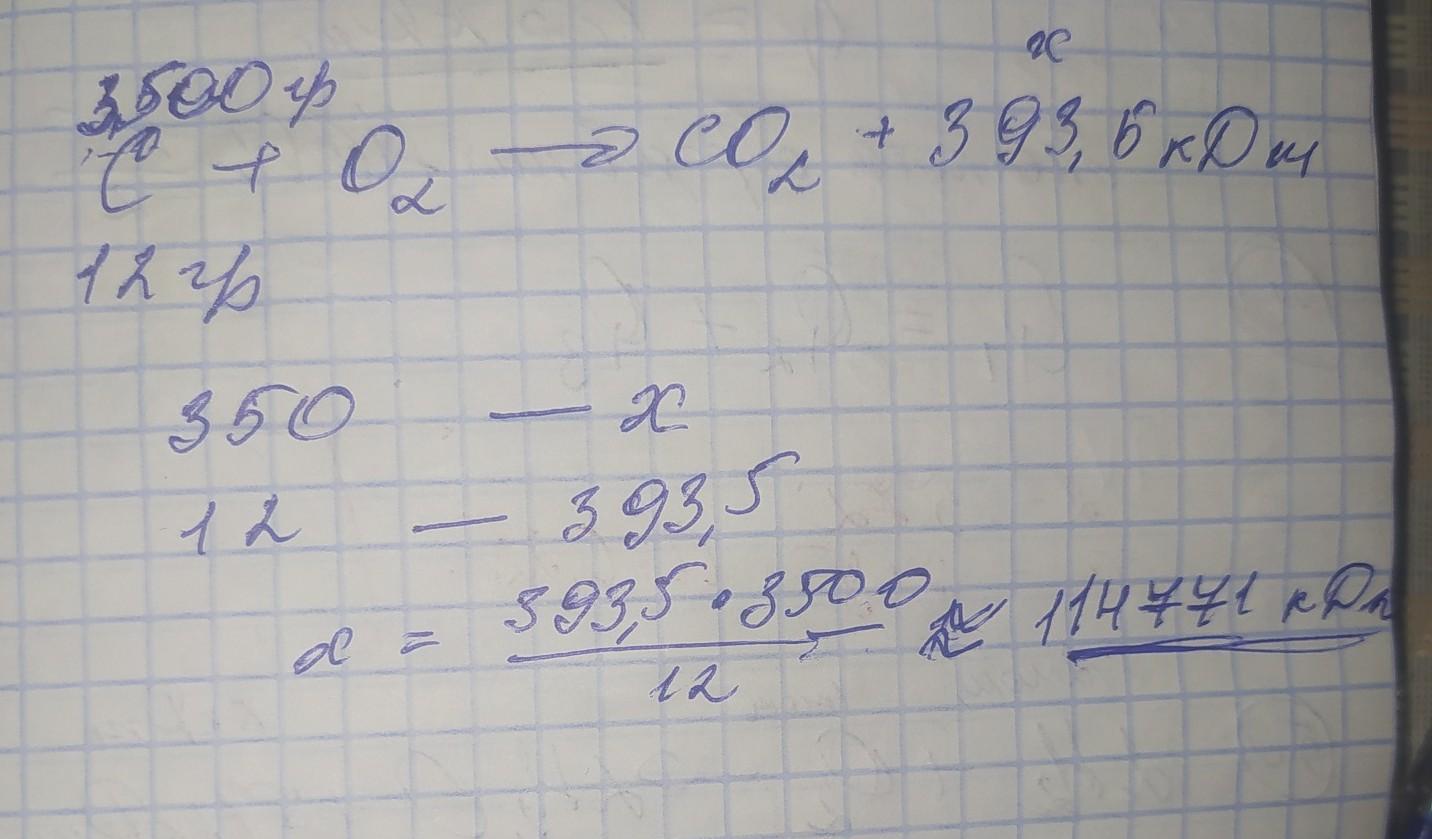 x
3500 гр
C + O₂ → CO₂ + 393,5 кДж
12 гр
350 — x
12 — 393,5
x = 393,5 · 3500 / 12 ≈ 114771 кДж